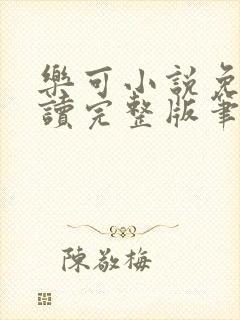 樂可小說免
讀完整版筆
陳敬梅